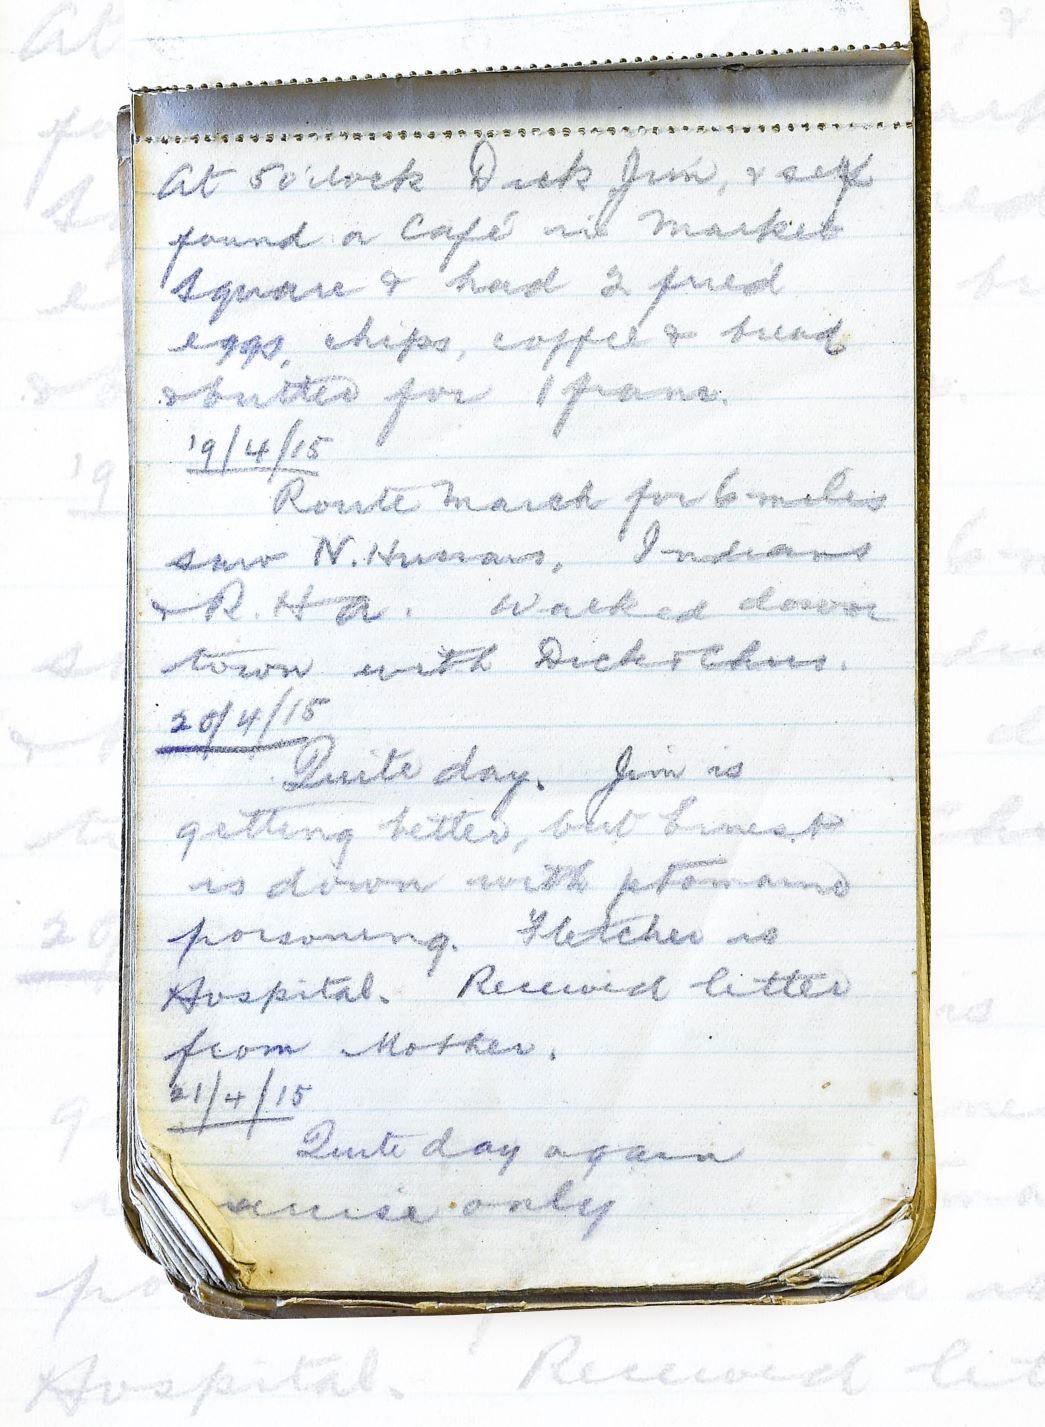 At 5 o'clock Dick Jim, & self
found a Café in Market
Square & had 2 fried
eggs, chips, coffee & bread
& butter for 1 franc.
19/4/15
Route March for 6 miles
saw N. Hussars, Indians
& R.H.A. Walked down
town with Dick & Chas.
20/4/15
Quite day. Jim is
getting better, but Ernest
is down with ptomaine
poisoning. Fletcher is
Hospital. Received letter
from Mother.
21/4/15
Quite day again
only